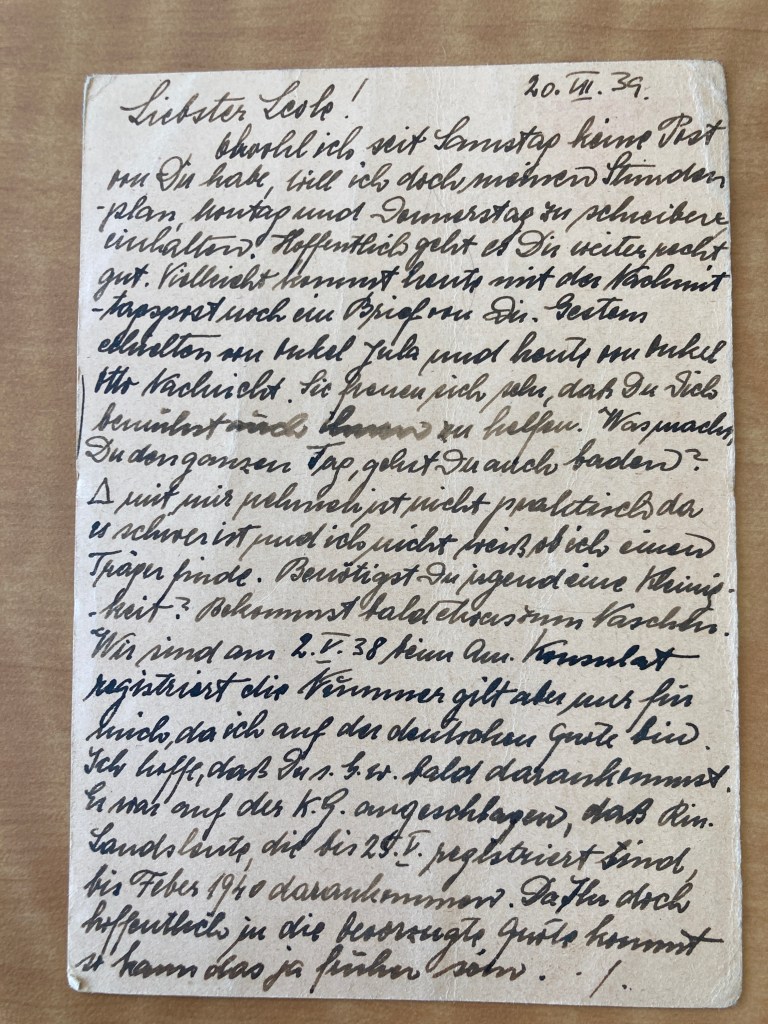 20. VII. 39.
Liebster Leole!
Obwohl ich seit Samstag keine Post
von Dir habe, will ich doch meinen Stunden
-plan, Montag und Donnerstag zu schreiben,
einhalten. Hoffentlich geht es Dir weiter recht
gut. Vielleicht kommt heute mit der Nachmit
-tagspost noch ein Brief von Dir. Gestern
erhielten von Onkel Jula und heute von Onkel
Otto Nachricht. Sie freuen sich sehr, daß Du Dich
bemühst auch ihnen zu helfen. Was machst
Du den ganzen Tag, gehst Du auch baden?
Δ mit mir nehmen ist nicht praktisch da
es schwer ist und ich nicht weiß ob ich einen
Träger finde. Benötigst Du irgend eine Kleinig-
-keit? Bekommst bald etwas zum Naschen.
Wir sind am 2. V. 38 beim Am. Konsulat
registriert die Nummer gilt aber nur für
mich, da ich auf der deutschen Quote bin.
Ich hoffe, daß Du s. G. w. bald darankommst.
Es war auf der K.G. angeschlagen, daß Rum.
Landsleute, die bis 25. V. registriert sind,
bis Feber 1940 darankommen. Da Ihr doch
hoffentlich in die bevorzugte Quote kommt
so kann das ja früher sein. ./.